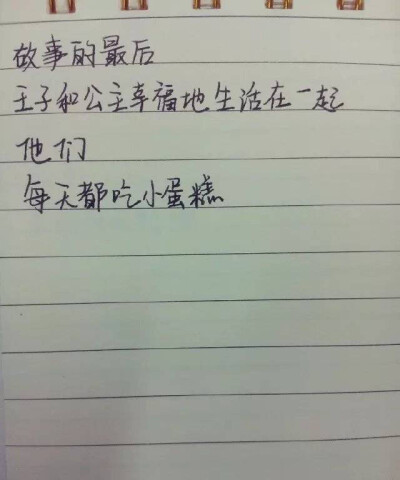 故事的最后
王子和公主幸福地生活在一起
他们
每天都吃小蛋糕